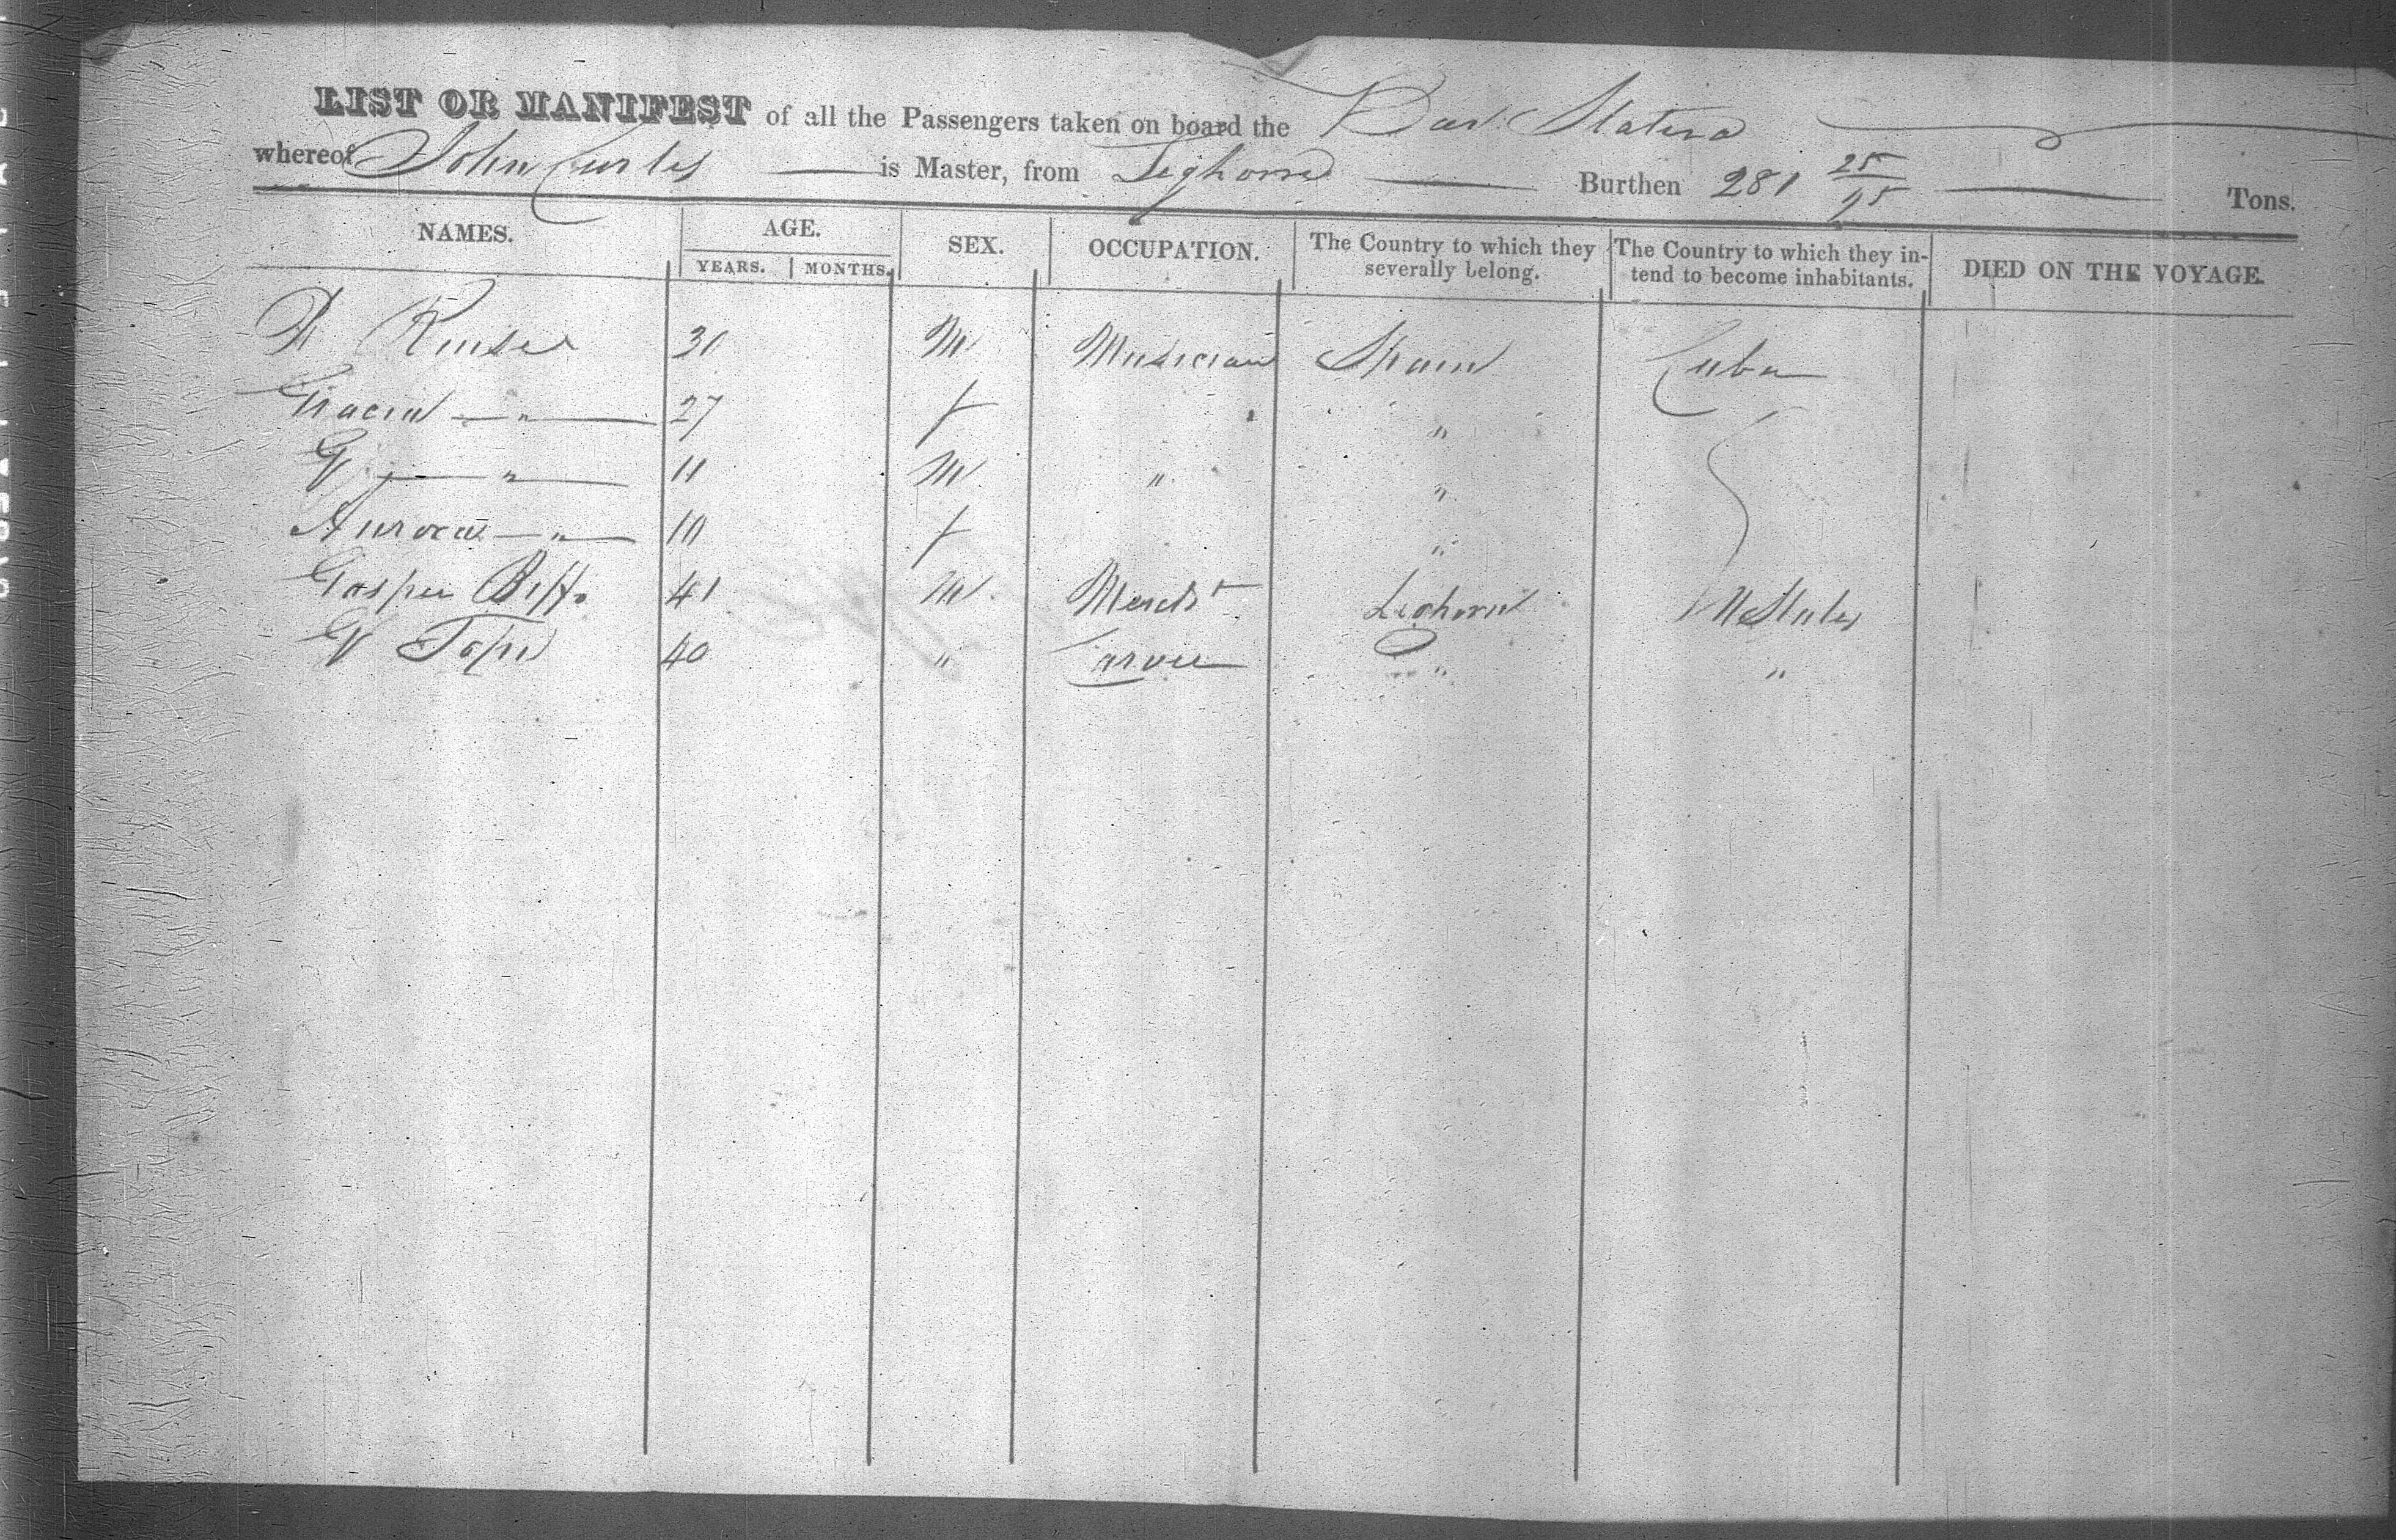 LIST OR MANIFEST of all the Passengers taken on board the Bark Statira
whereof John Curtis is Master, from Leghorn Burthen 281 25/95 Tons.
NAMES. AGE. SEX. OCCUPATION. The Country to which they severally belong. The Country to which they intend to become inhabitants. DIED ON THE VOYAGE.
YEARS. MONTHS.
31 M Musician Spain Cuba
" 27 f "
G " 11 M " "
" 10 f "
Gasper Biffi 41 M Mercht Leghorn UStates
G 40 " Carver " "